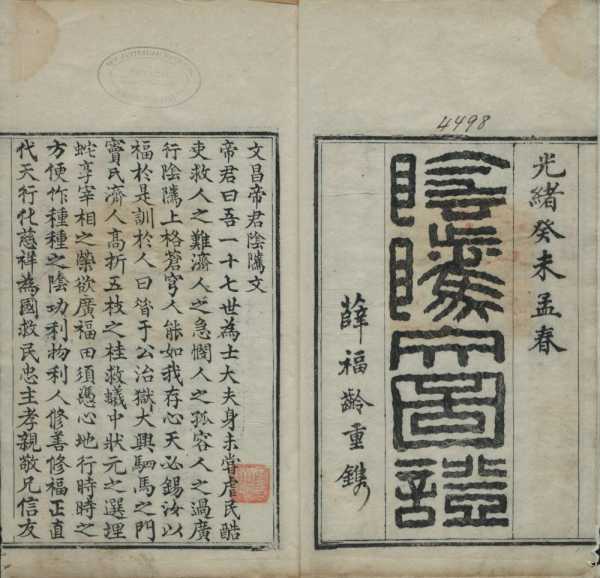 4498
光緒癸未孟春
陰隲文圖證
薛福齡重鐫
文昌帝君陰隲文
帝君曰吾一十七世為士大夫身未嘗虐民酷
吏救人之難濟人之急憫人之孤容人之過廣
行陰隲上格蒼穹人能如我存心天必錫汝以
福於是訓於人曰昝于公治獄大興駟馬之門
竇氏濟人高折五枝之桂救蟻中狀元之選埋
蛇享宰相之榮欲廣福田須憑心地行時時之
方便作種種之陰功利物利人修善修福正直
代天行化慈祥為國救民忠主孝親敬兄信友